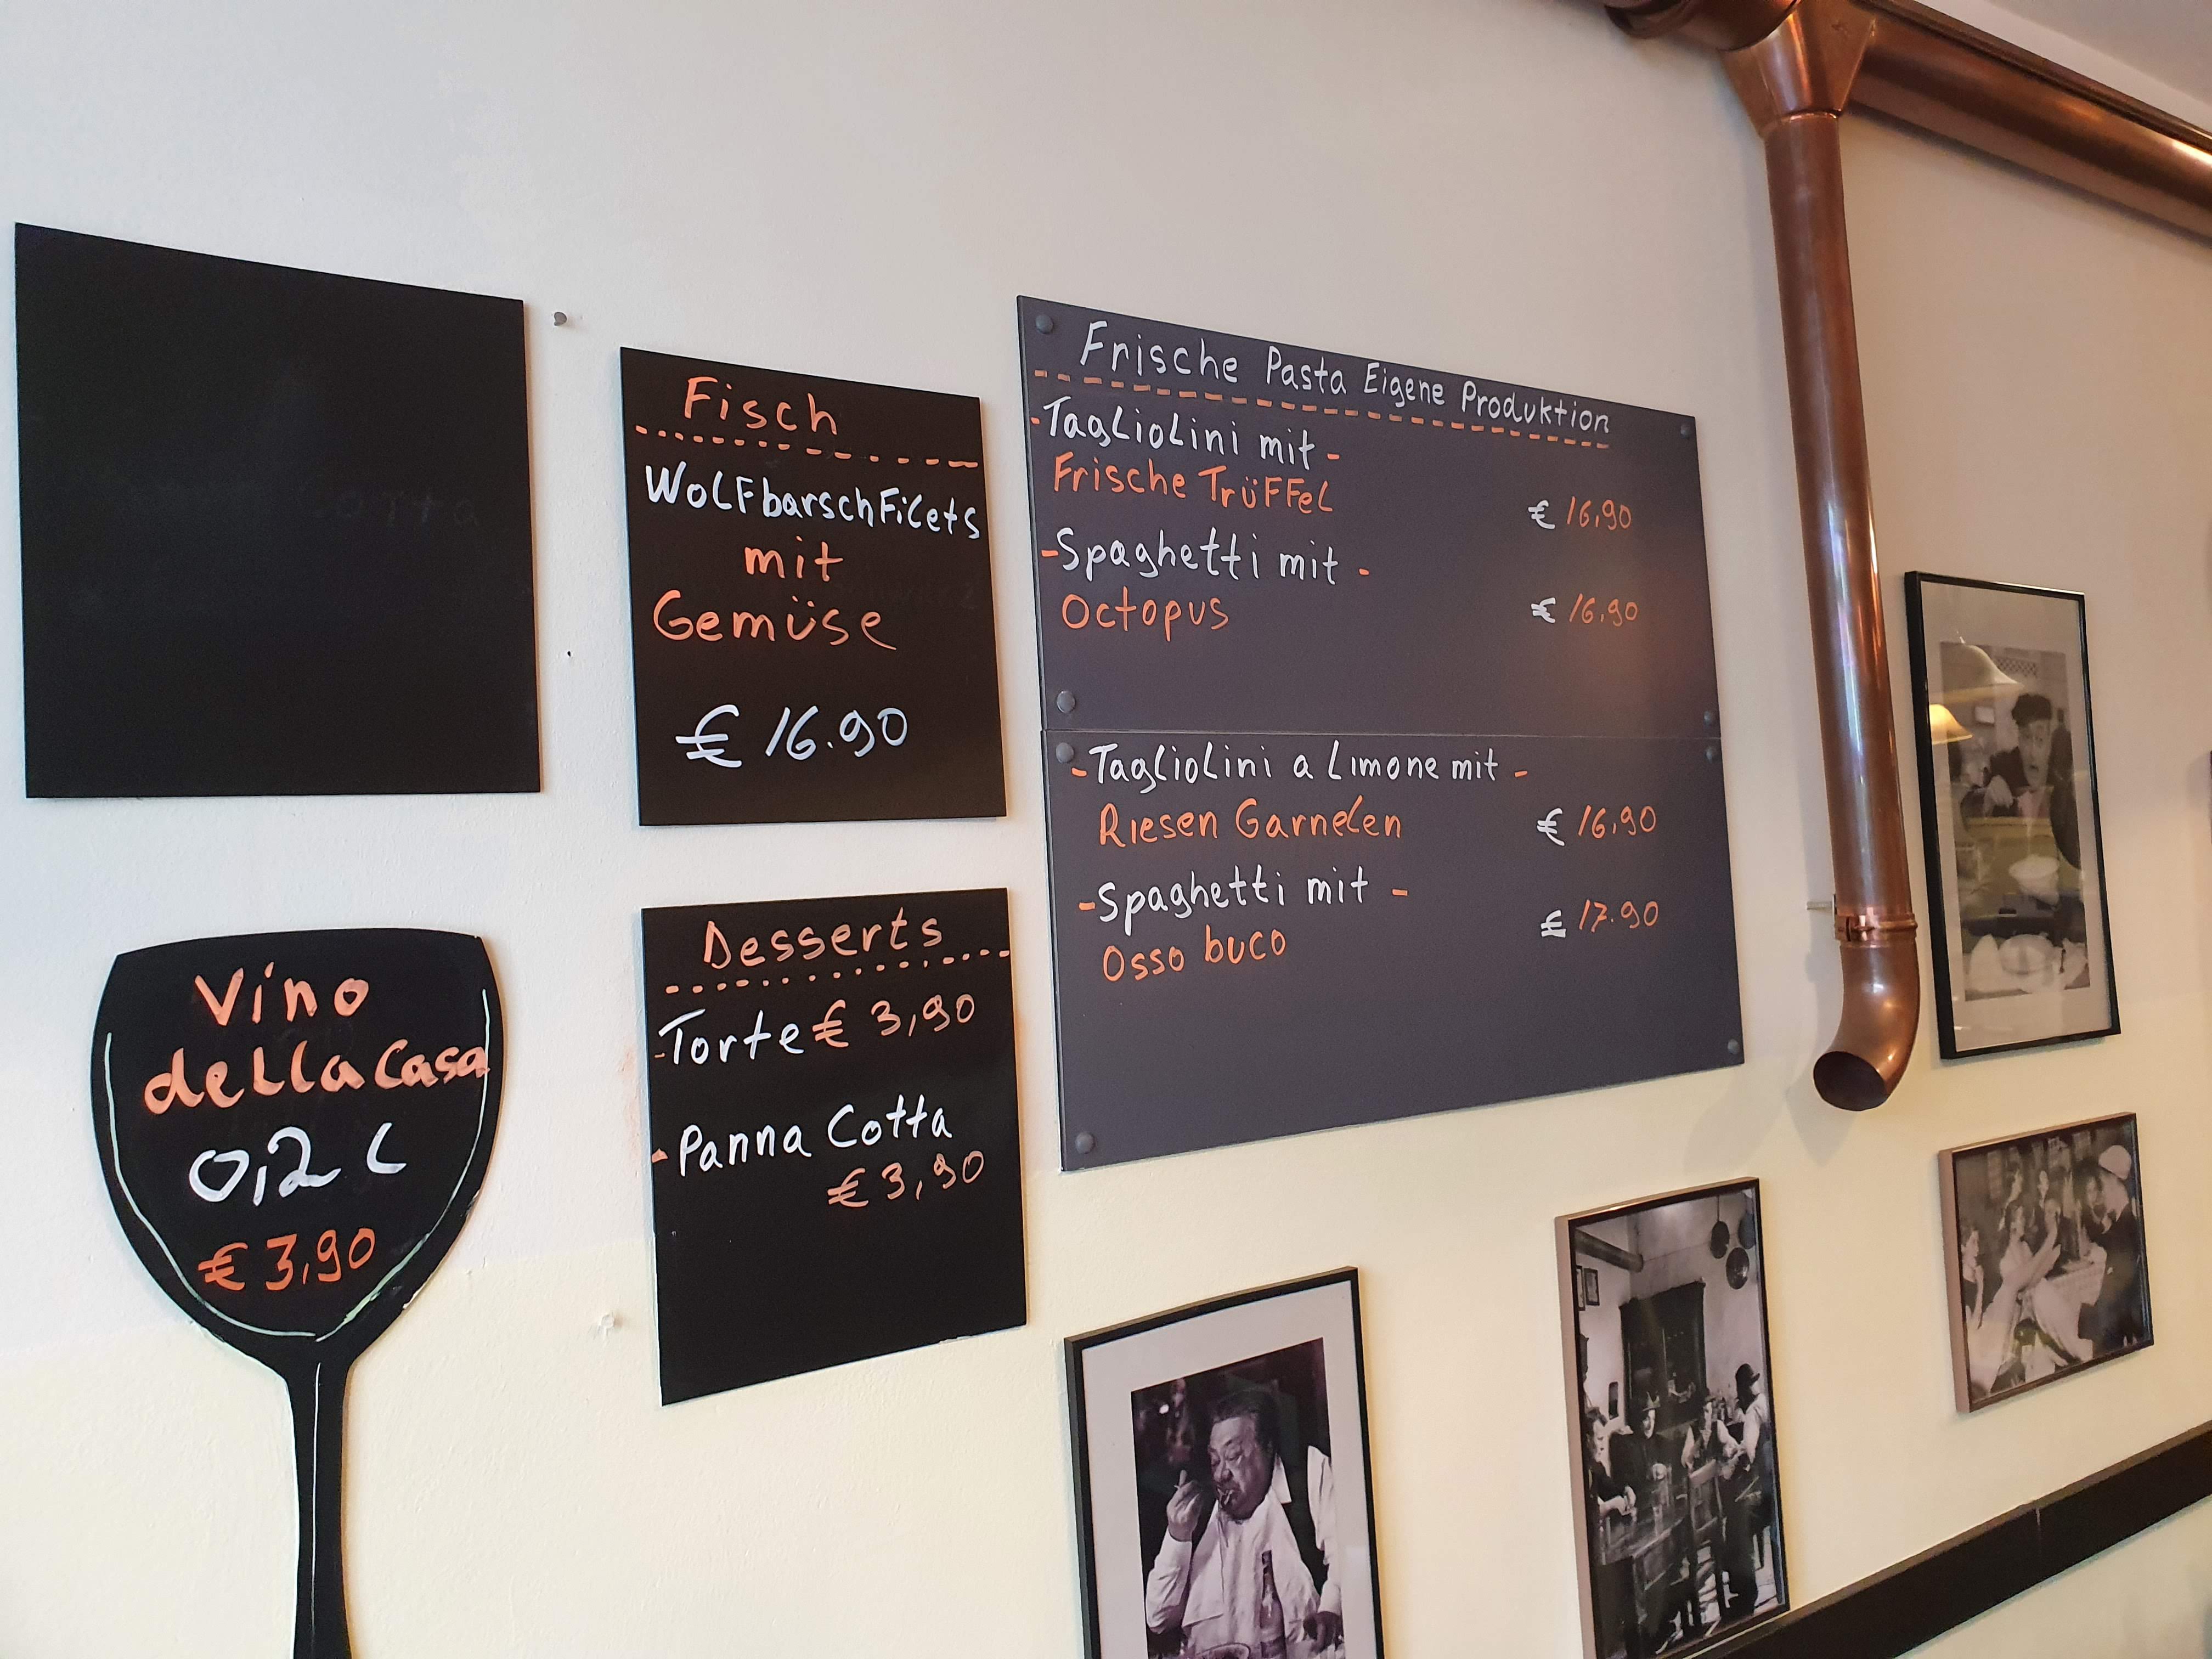 Fisch
Wolfbarschfilets
mit
Gemüse
€ 16.90
Frische Pasta Eigene Produktion
-Tagliolini mit-
Frische Trüffel € 16,90
-Spaghetti mit-
Octopus € 16,90
-Tagliolini a Limone mit-
Riesen Garnelen € 16,90
-Spaghetti mit-
Osso buco € 17.90
Vino
della Casa
0,2 L
€ 3,90
Desserts
-Torte € 3,90
-Panna Cotta
€ 3,90